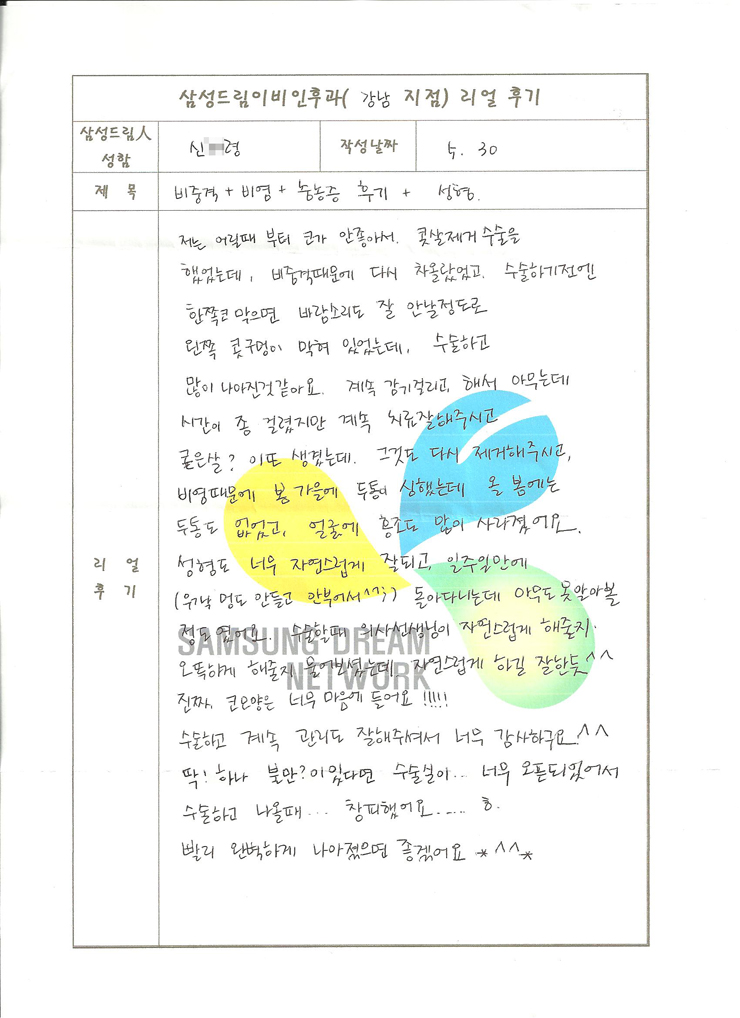 삼성드림이비인후과( 강남 지점) 리얼 후기
삼성드림人 성함
신 령
작성날짜
5. 30
제 목
비중격 + 비염 + 축농증 후기 + 성형.
리 얼
후 기
저는 어릴때 부터 코가 안좋아서. 콧살제거 수술을
했었는데, 비중격때문에 다시 차올랐었고. 수술하기전엔
한쪽코 막으면 바람소리도 잘 안날정도로
왼쪽 콧구멍이 막혀 있었는데, 수술하고
많이 나아진것같아요. 계속 감기걸리고, 해서 아무는데
시간이 좀 걸렸지만 계속 치료잘해주시고
굳은살? 이또 생겼는데. 그것도 다시 제거해주시고,
비염때문에 봄 가을에 두통이 심했는데 올 봄에는
두통도 없었고, 얼굴에 홍조도 많이 사라졌어요.
성형도 너무 자연스럽게 잘되고, 일주일만에
(워낙 멍도 안들고 안부어서^^;;) 돌아다니는데 아무도못알아볼
정도 였어요. 수술할때 의사선생님이 자연스럽게 해줄지.
오똑하게 해줄지 물어보셨는데, 자연스럽게 하길 잘한듯^^
진짜, 코모양은 너무 마음에 들어요 !!!!!
수술하고 계속 관리도 잘해주셔서 너무 감사하구요.^^
딱! 하나 불만?이있다면 수술실이... 너무 오픈되있어서
수술하고 나올때... 창피했어요..... ㅎ.
빨리 완벽하게 나아졌으면 좋겠어요 *^^*
SAMSUNG DREAM
NETWORK